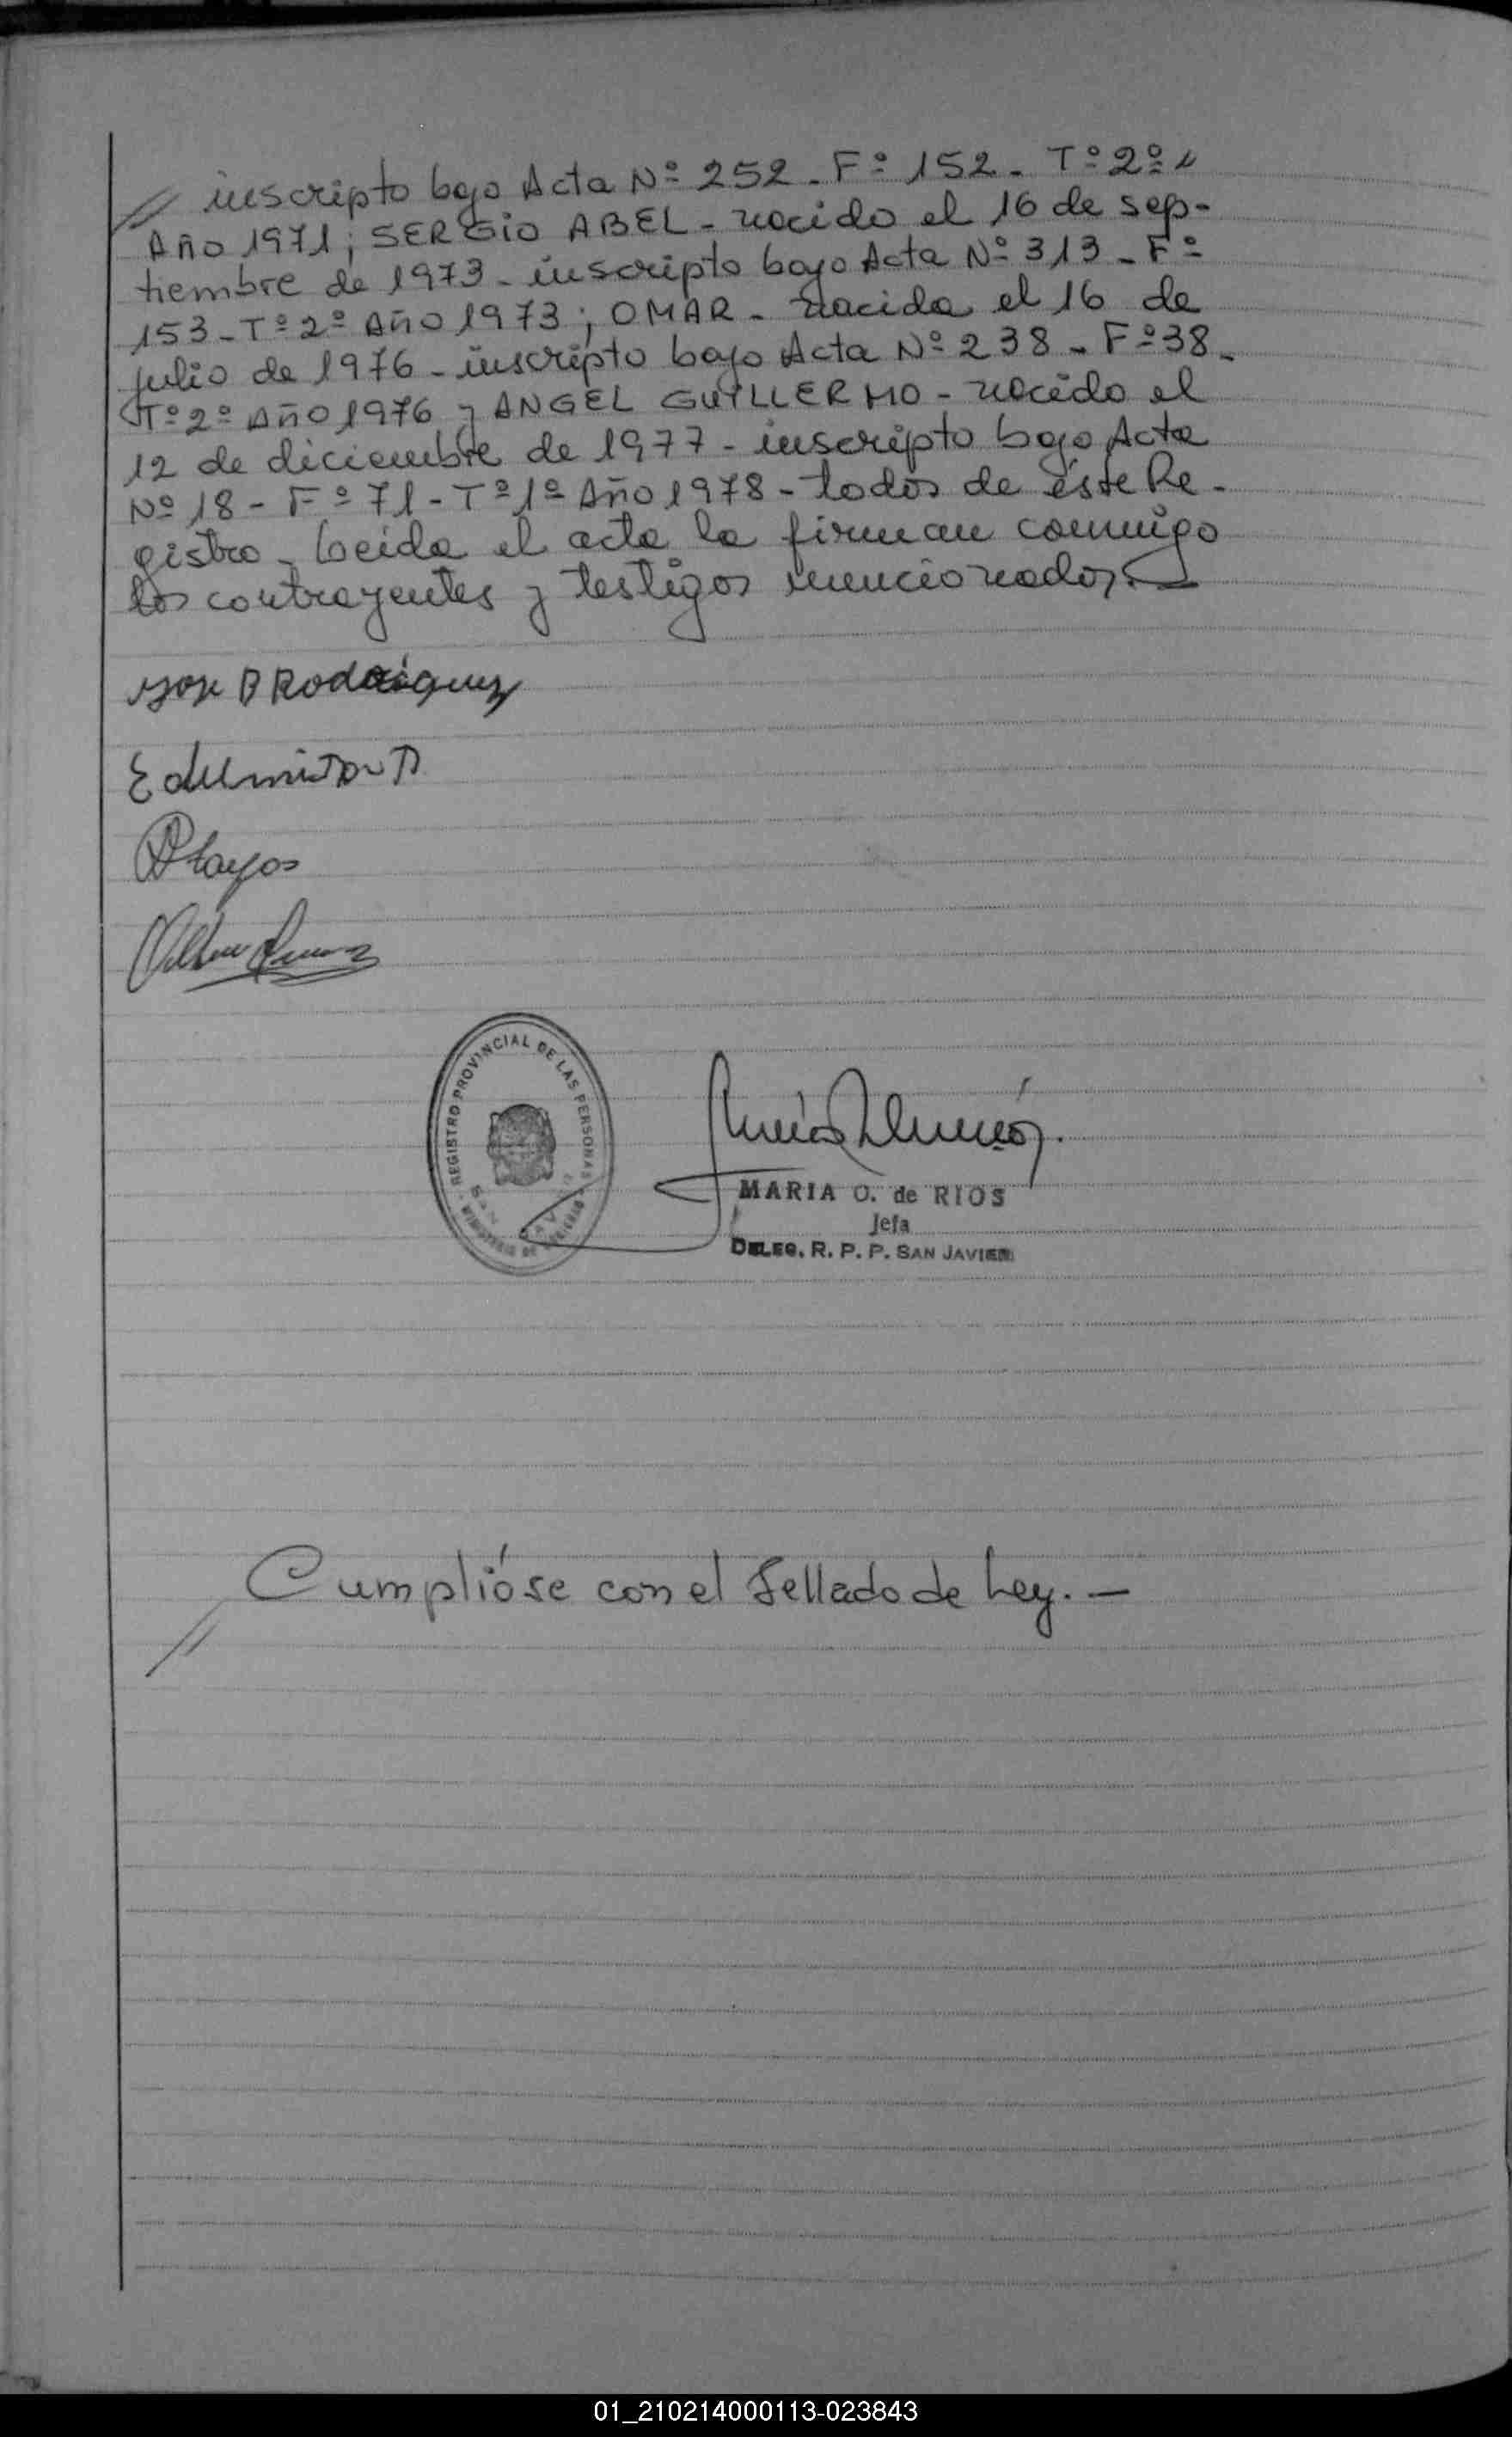 // inscripto bajo Acta Nº 252 - Fº 152 - Tº 2º -
Año 1971; SERGIO ABEL - nacido el 16 de sep-
tiembre de 1973 - inscripto bajo Acta Nº 313 - Fº
153 - Tº 2º Año 1973; OMAR - nacido el 16 de
julio de 1976 - inscripto bajo Acta Nº 238 - Fº 38 -
Tº 2º Año 1976 y ANGEL GUILLERMO - nacido el
12 de diciembre de 1977 - inscripto bajo Acta
Nº 18 - Fº 71 - Tº 1º Año 1978 - todos de éste Re-
gistro - Leida el acta la firman conmigo
los contrayentes y testigos mencionados.
Jose B Rodriguez
REGISTRO PROVINCIAL DE LAS PERSONAS
MINISTERIO DE GOBIERNO
SAN JAVIER
MARIA O. de RIOS
Jefa
DELEG. R. P. P. SAN JAVIER
Cumplióse con el Sellado de Ley. -
//
01_210214000113-023843